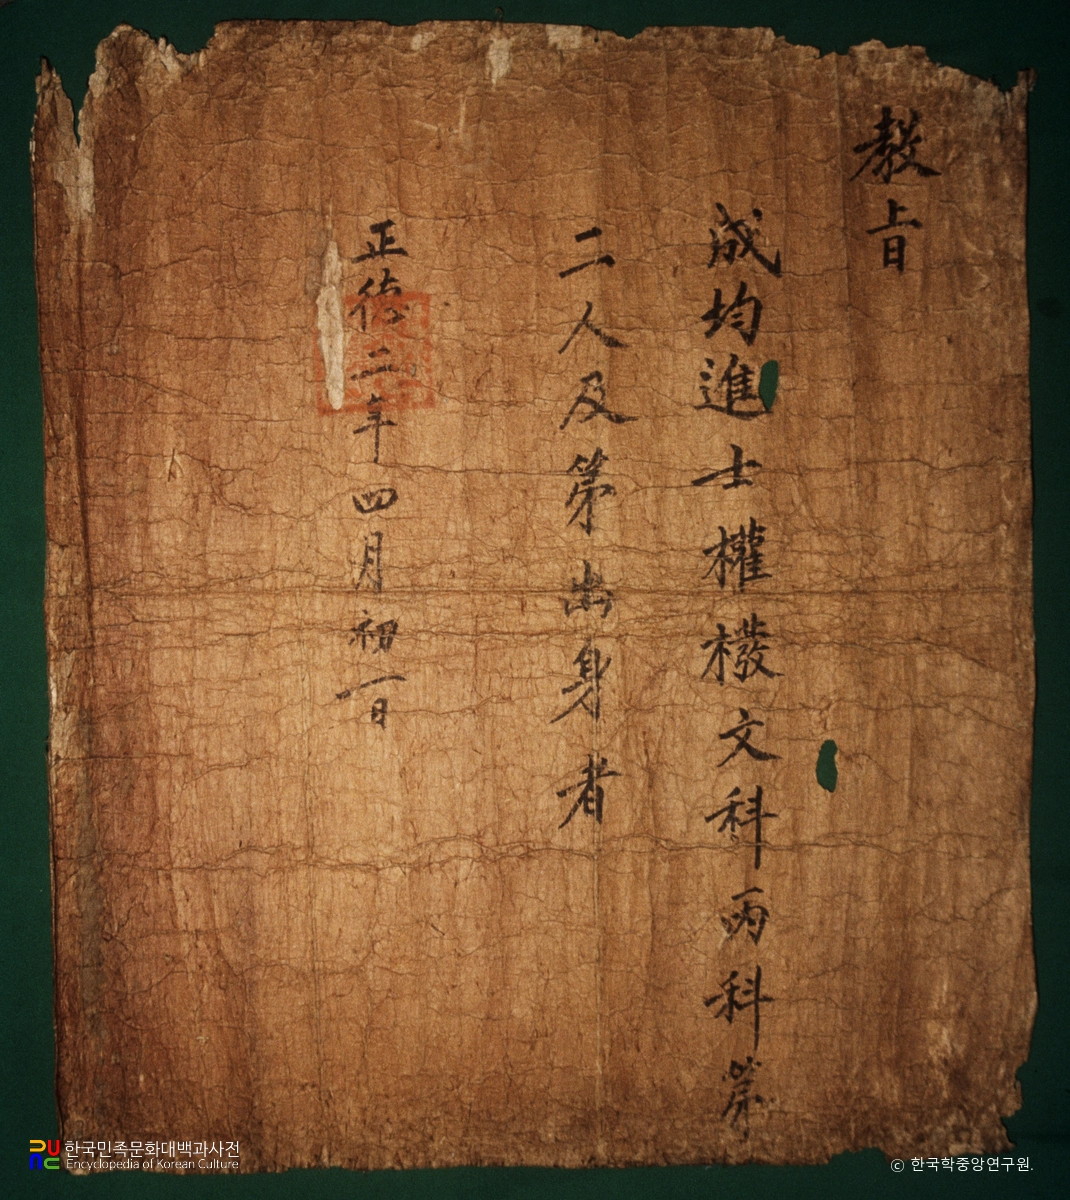 教旨
成均進士權橃文科丙科第
二人及第出身者
正德二年四月初一日
한국민족문화대백과사전
Encyclopedia of Korean Culture
ⓒ 한국학중앙연구원.